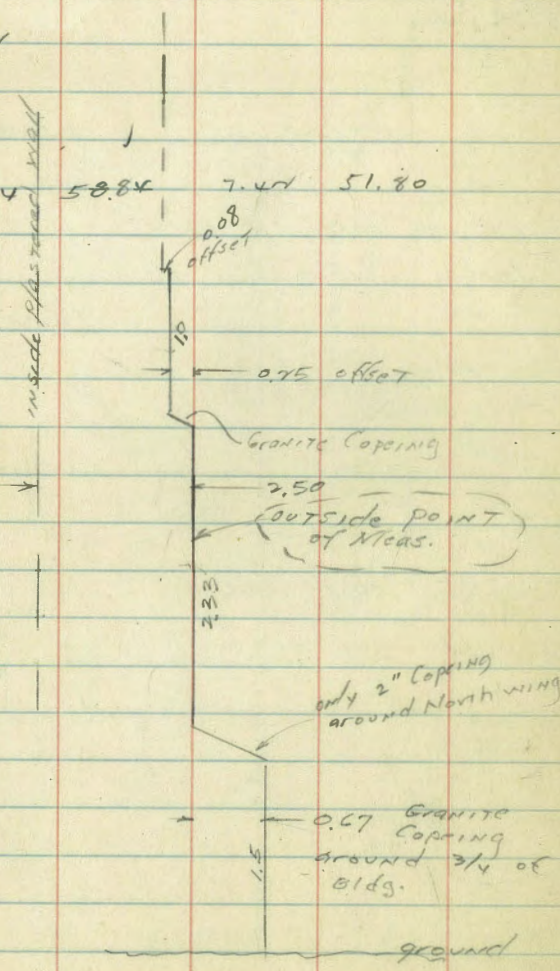 inside Plastered wall
4 58.84 7.42 51.80
0.08
offset
1.0
0.25 offset
Granite Copeing
2.50
outside POINT
of Meas.
2.33
only 2" Copeing
around North wing
0.67 Granite
Copeing
around 3/4 of
Bldg.
1.5
ground